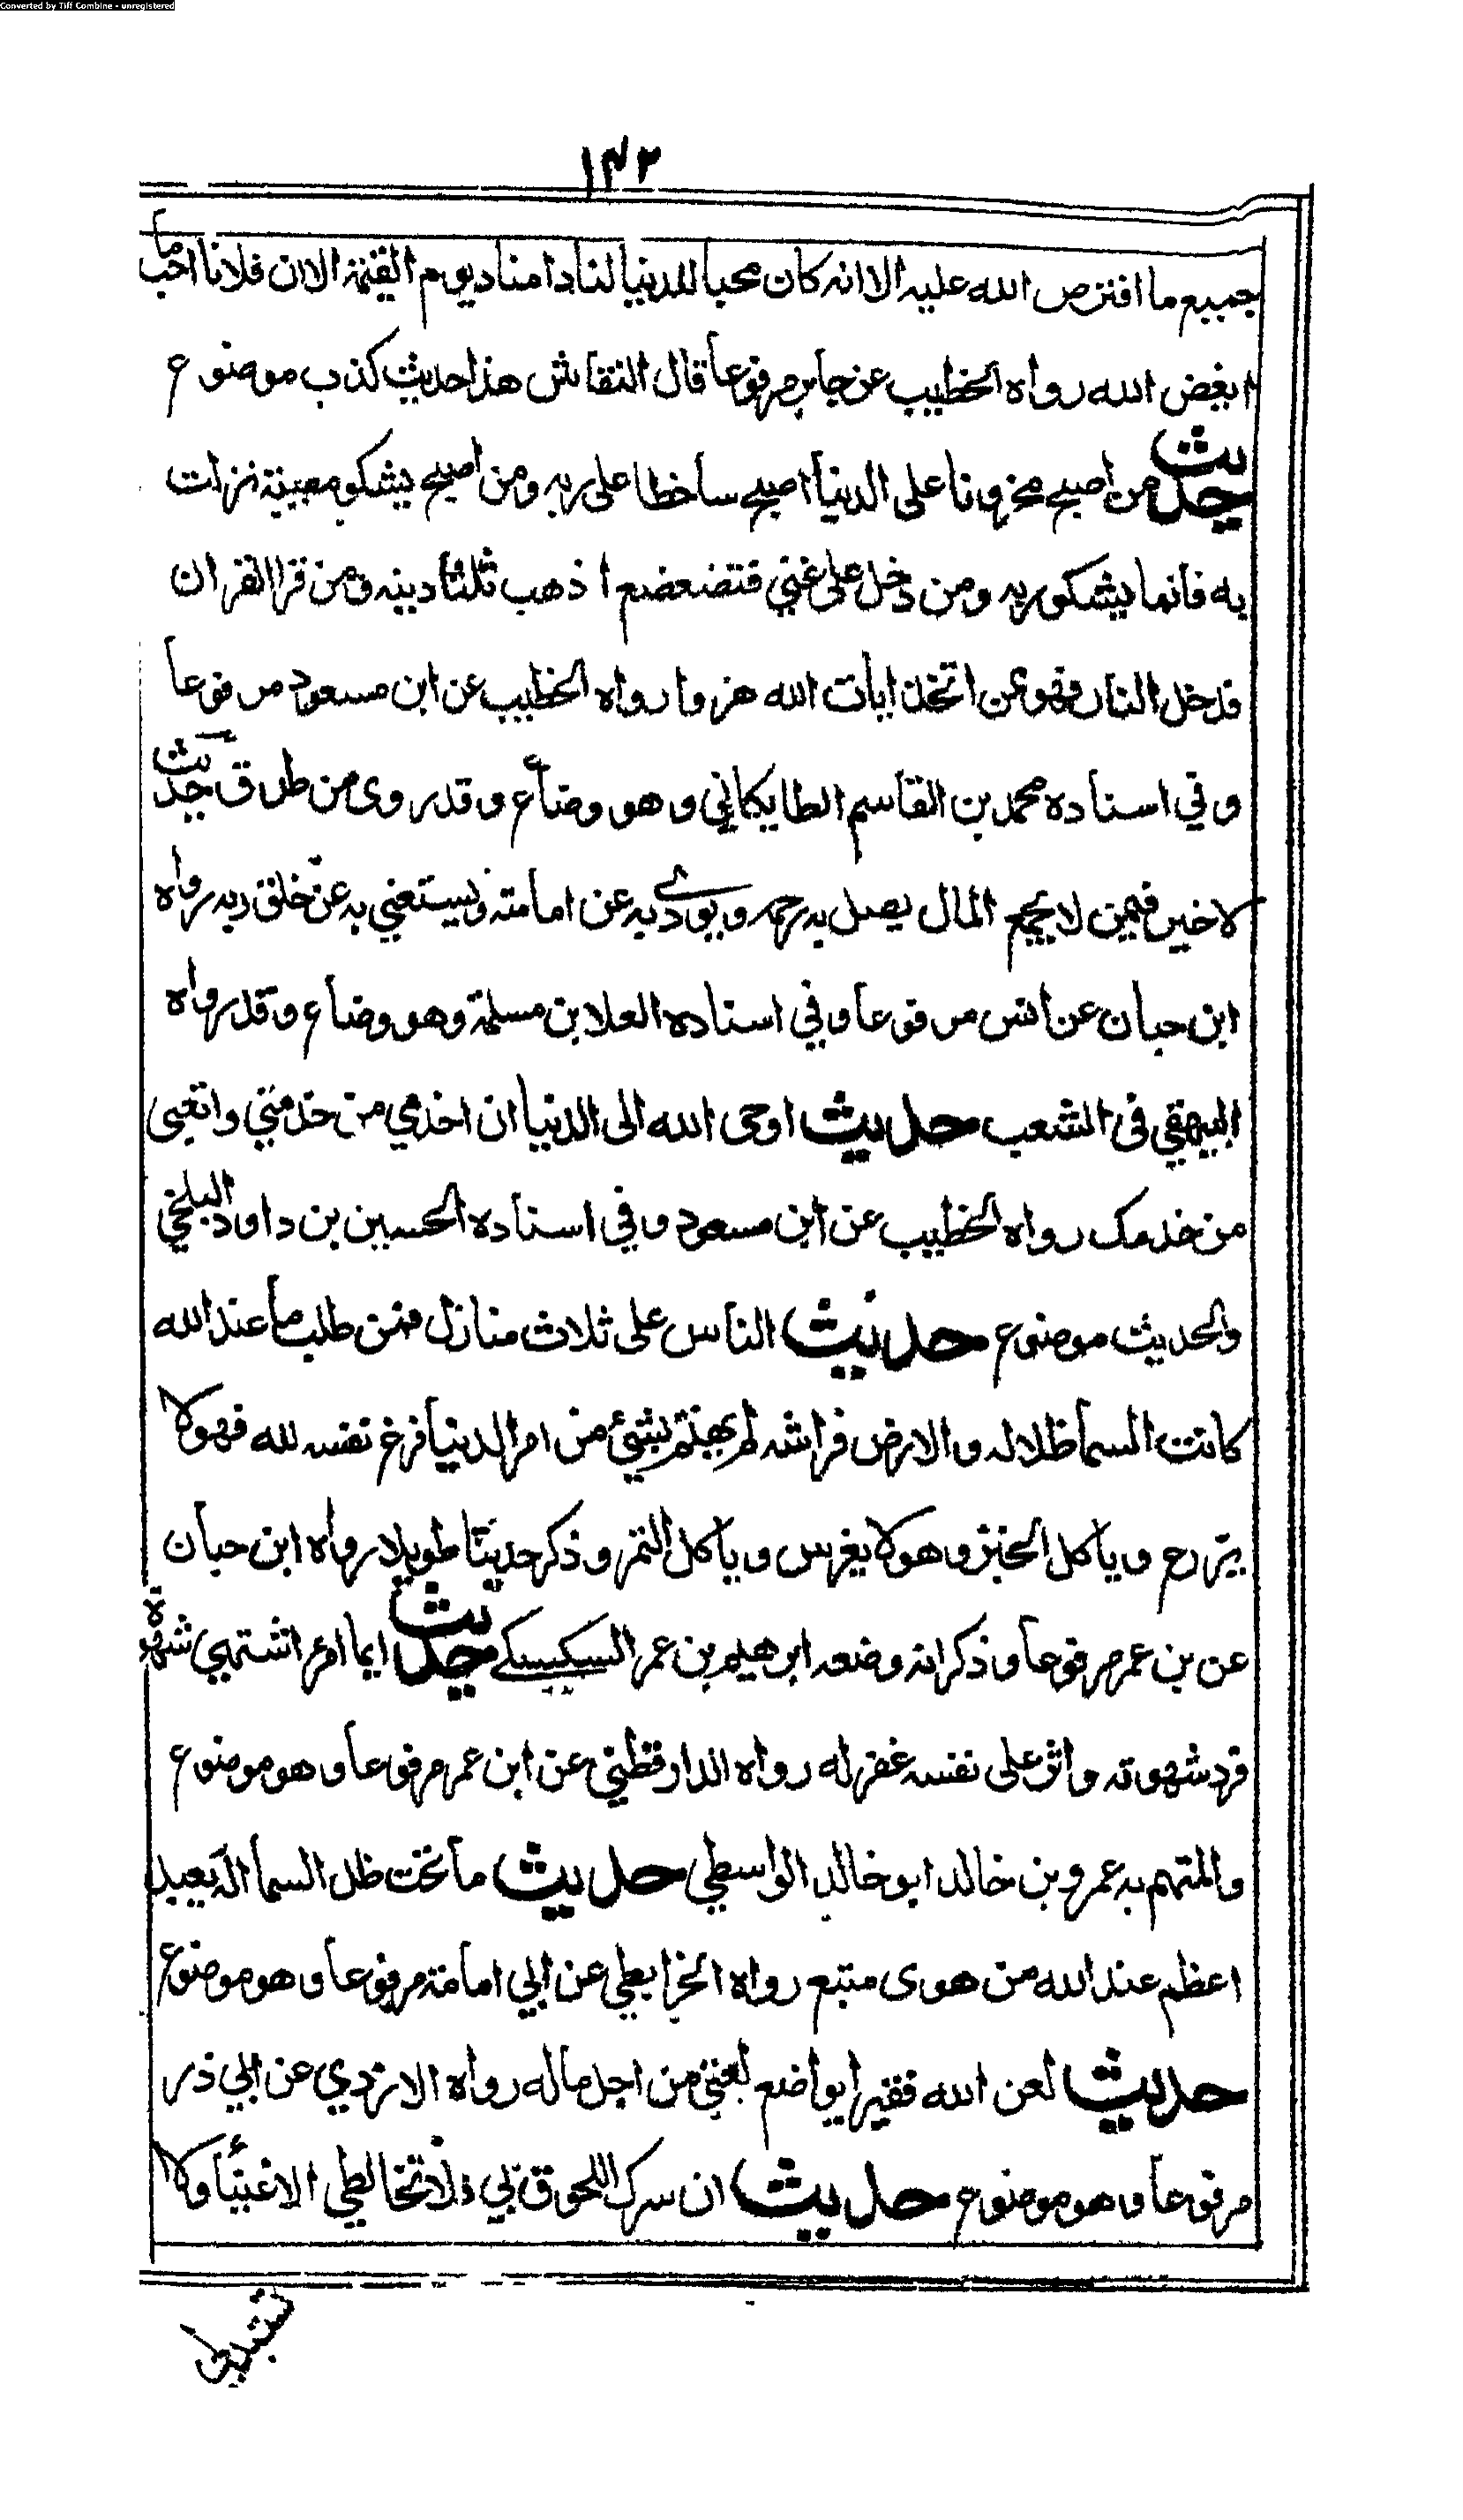 Converted by Tiff Combine - unregistered
١٣٢
جميع ما افترض الله عليه الا انه كان محبا للدنيا لنادا مناد يوم القيمة الا ان فلانا احب ما
ابغض الله رواه الخطيب عن جابر مرفوعا قال النقاش هذا حديث كذب موضوع
حديث من اصبح محزونا على الدنيا اصبح ساخطا على ربه ومن اصبح يشكو مصيبة نزلت
به فانما يشكو ربه ومن دخل على غني فتضعضع ا ذهب ثلثا دينه ومن قرا القران
فدخل النار فهو ممن اتخذ ايات الله هزوا رواه الخطيب عن ابن مسعود مرفوعا
وفي اسناده محمد بن القاسم الطايكاني وهو وضاع وقد روى من طرق حديث
لا خير فيمن لا يجمع المال يصل به رحمه ويودي به عن امامته ويستغني به عن خلق ربه رواه
ابن حبان عن انس مرفوعا وفي اسناده العلا بن مسلمة وهو وضاع وقد رواه
البيهقي في الشعب حديث اوحى الله الى الدنيا ان اخدمي من خدمني واتعبى
من خدمك رواه الخطيب عن ابن مسعود وفي اسناده الحسين بن داود البلخي
والحديث موضوع حديث الناس على ثلاث منازل فمن طلب ما عند الله
كانت السما ظلاله والارض فراشه لم يهتم بشئ من امر الدنيا فرغ نفسه لله فهو لا
يزرع وياكل الخبز وهو لا يغرس وياكل الثمر وذكر حديثا طويلا رواه ابن حبان
عن بن عمر مرفوعا وذكر انه وضعه ابرهيم بن عمر السكسكے حديث ايما امرا اشتهي شهوة
فرد شهوته واثر على نفسه غفر له رواه الدارقطني عن ابن عمر مرفوعا وهو موضوع
والمتهم به عمرو بن خالد ابو خالد الواسطي حديث ما تحت ظل السما اله يعبد
اعظم عند الله من هوى متبع رواه الخرايطي عن ابي امامة مرفوعا وهو موضوع
حديث لعن الله فقيرا يواضع لغني من اجل ماله رواه الازدي عن ابي ذر
مرفوعا وهو موضوع حديث ان سرك اللحوق بي فلا تخالطي الاغنيأ ولا